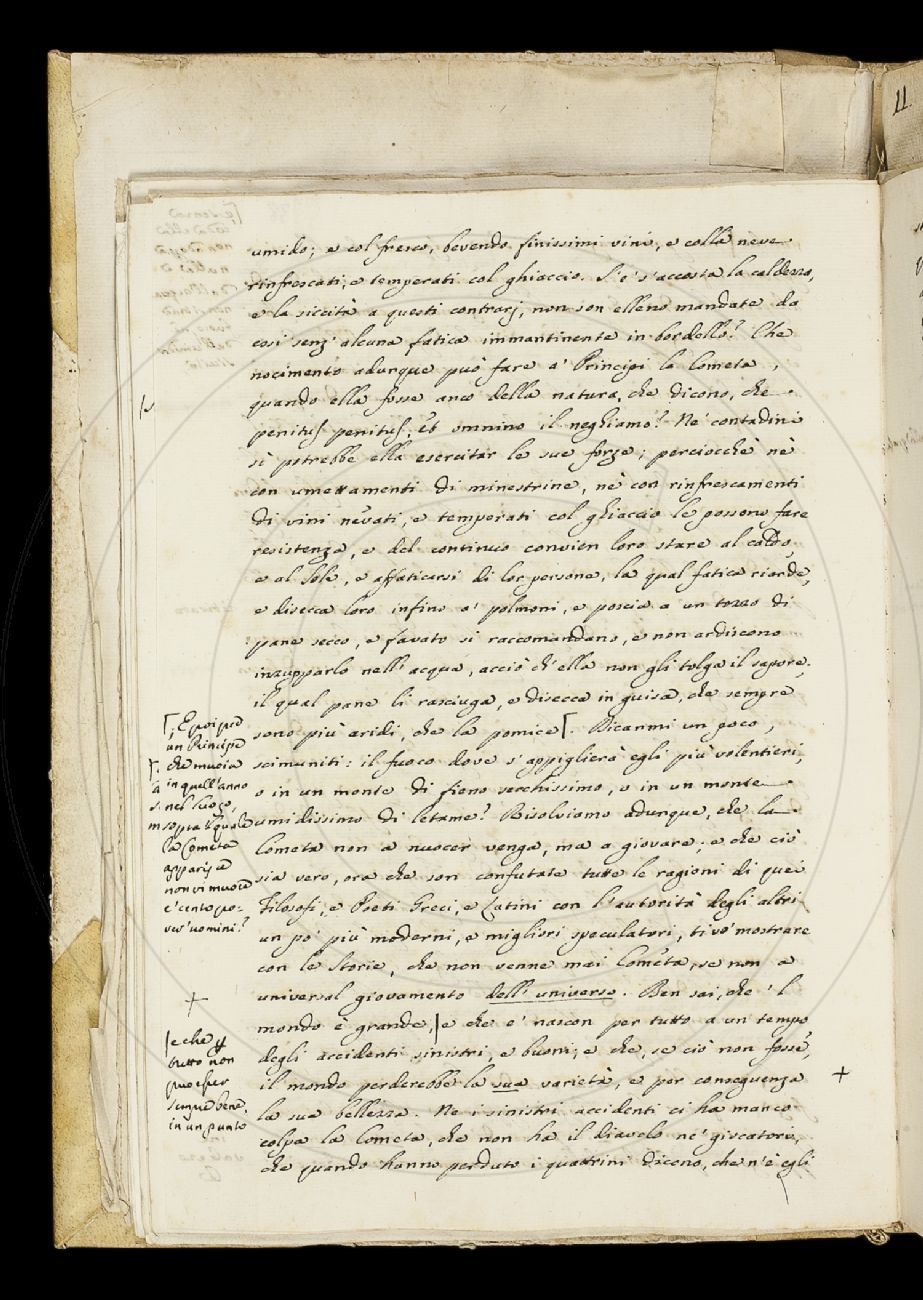 umido; e col fresco, bevendo finissimi vini, e colla neve
rinfrescati, e temperati col ghiaccio. S'e' s'accosta la caldezza,
e la siccità a questi contrarj, non son elleno mandate da
così senz'alcuna fatica immantinente in bordello? Che
nocimento adunque può fare a' Principi la Cometa,
quando ella fosse anco della natura, che dicono, che
penitus penitus, et omnino il neghiamo? Ne' contadini
sì potrebbe ella esercitar le sue forze; perciocchè nè
con umettamenti di minestrine, nè con rinfrescamenti
di vini nevati, e temperati col ghiaccio le possono fare
resistenza, e del continuo convien loro stare al caldo,
e al Sole, e affaticarsi di lor persone, la qual fatica riarde,
e disecca loro infino a' polmoni, e poscia a un tozzo di
pane secco, e favato si raccomandano, e non ardiscono
inzupparlo nell'acqua, acciò ch'ella non gli tolga il sapore;
il qual pane li rasciuga, e disecca in guisa, che sempre
sono più aridi, che la pomice. Dicanmi un poco,
scimuniti: il fuoco dove s'appiglierà egli più volentieri,
o in un monte di fieno secchissimo, o in un monte
umidissimo di letame? Risolviamo adunque, che la
Cometa non a nuocer venga, ma a giovare; e che ciò
sia vero, ora che son confutate tutte le ragioni di quei
Filosofi, e Poeti Greci, e Latini con l'autorità degli altri
un po' più moderni, e migliori speculatori, ti vo' mostrare
con le Storie, che non venne mai Cometa, se non a
universal giovamento dell'universo. Ben sai, che 'l
mondo è grande, e che e' nascon per tutto a un tempo
degli accidenti sinistri, e buoni, e che, se ciò non fosse,
il mondo perderebbe la sua varietà, e per conseguenza
la sua bellezza. Ne i sinistri accidenti ci ha manco
colpa la Cometa, che non ha il diavolo ne' giocatori,
che quando hanno perduto i quattrini dicono, che n'è egli
; E poi può
un Principe
che muoia
in quell'anno
nel luogo,
sopra 'l quale
la Cometa
apparisca
non vi muoia
e' cento po-
ver'uomini?
+
e che
tutto non
può esser
sempre bene,
in un punto
+
11.